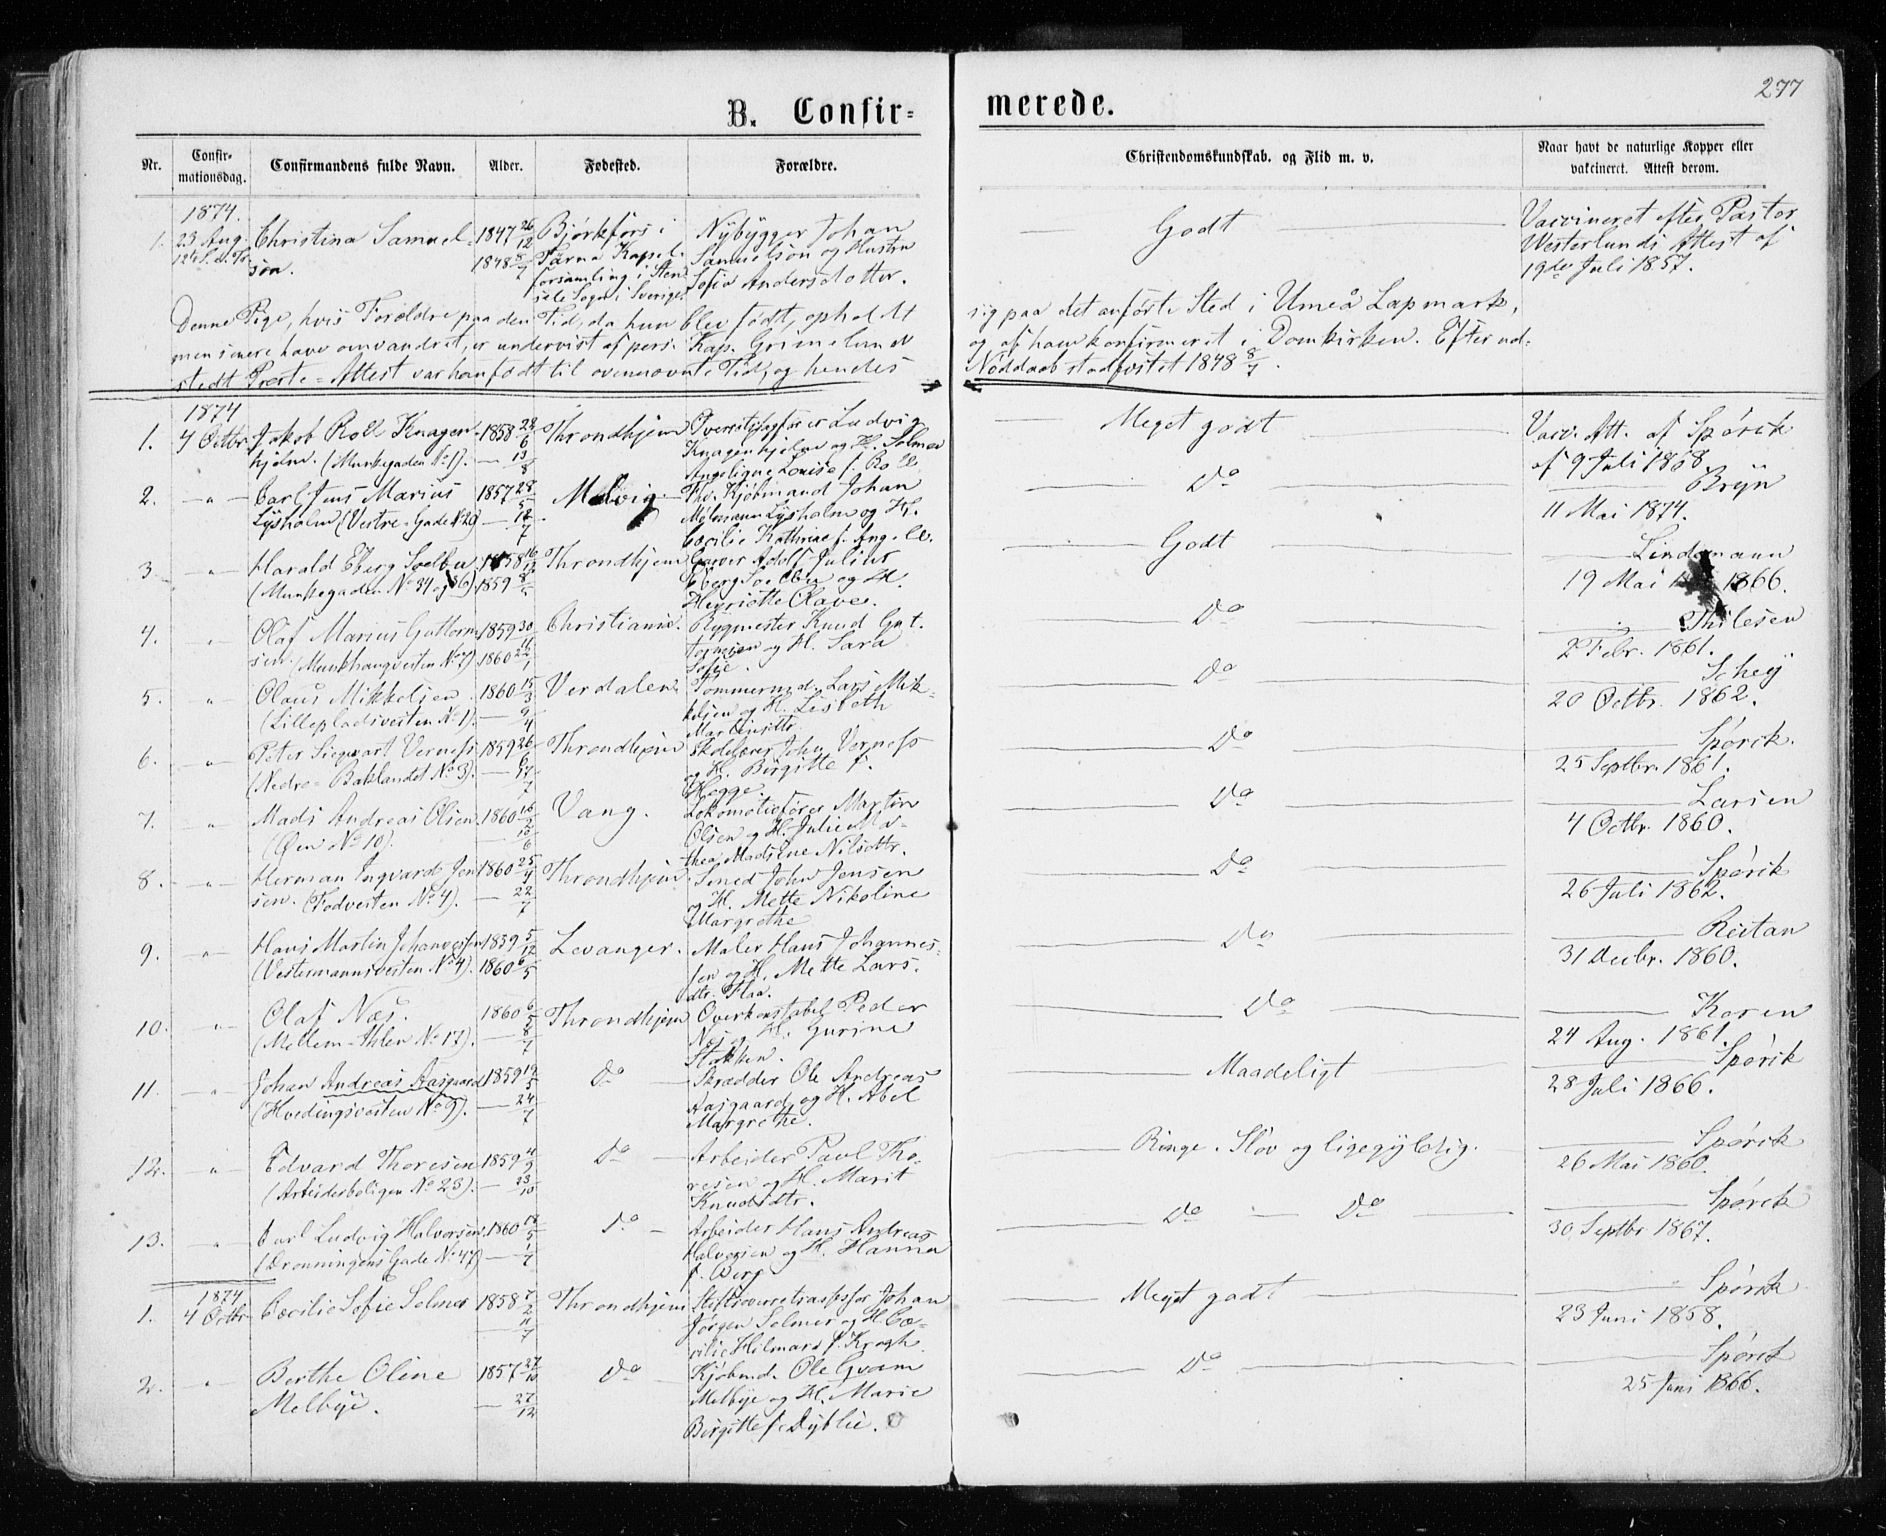 277
B. Confir=
merede.
Nr.
Confir-
mationsdag.
Confirmandens fulde Navn.
Alder.
Fødested.
Forældre.
Christendomskundskab. og Flid m. v.
Naar havt de naturlige Kopper eller
vakcineret. Attest derom.
1874.
1. 23 Aug. Christina Samuel- 1847 26/12 Bjørkfors i Nybygger Johan Godt Vaccineret efter Pastor
12te S. e. Tr. son. 1848 8/7 Tärna Kapel- Samuelson og Hustru Westerlunds Attest af
forsamling i Sten- Sofia Andersdotter. 19de Juli 1857.
sele Sogn i Sverige.
Denne Pige, hvis Forældre paa den Tid, da hun blev født, opholdt sig paa det anførte Sted i Umeå Lapmark,
men senere have omvandret, er undervist af pers. Kap. Grimelund og af ham konfirmeret i Domkirken. Efter ud-
stedt Præste-Attest var han født til ovennævnte Tid, og hendes Nøddaab stadfæstet 1848 8/7.
1874
1. 4 Octbr. Jakob Roll Knagen- 1858 Throndhjem Ludvig Meget godt Vacc. Att. af Spørck
hjelm. (Munkegaden No 1). — 13/8 Knagenhjelm og H. Selmer af 9 Juli 1868
Angelique Louise f. Roll
2. " Carl Jens Marius 1857 28/5 Malvig Fhv. Kjøbmand Johan Do — Bryn
Lysholm (Vestre-Gade No 20) — Lysholm og H. 11 Mai 1874.
Cæcilie Kathrine f. Angell.
3. " Harald Eberg 1858 16/12 Throndhjem Garver Adolf Julius Godt — Lindemann
(Munkegaden No 34 og 36). 1859 Eberg og H. 19 Mai 1866.
Henriette
4. " Olaf Marius Guttorm- 1859 30/11 Christiania. Bygmester Knud Gut- Do — Thilesen
sen. (Munkhaugveiten No 7). 1860 22/1 tormsen og H. Sara 2 Febr. 1861.
Sofie.
5. " Olaus Mikkelsen. 1860 15/3 Verdalen Tømmermd. Lars Mik- Do — Schey
(Lillepladsveiten No 1). — 9/4 kelsen og H. Lisbeth 20 Octbr. 1862.
Martinsdtr.
6. " Peter Siegwart Verness 1859 26/6 Throndhjem Skolelærer John Verness Do — Spørck.
(Nedre-Baklandet No 3). — 17/7 og H. Birgitte f. 25 Septbr. 1861.
Hogge.
7. " Mads Andreas Olsen. 1860 Vang. Lokomotivfører Martin Do — Larsen
(Øen No 10). — Olsen og H. Julie Ma- 4 Octbr. 1860.
thea Madsine Nilsdtr.
8. " Herman Ingvard Jen- 1860 25/4 Throndhjem Smed John Jensen Do — Spørck
sen. (Fodveiten No 4). — 22/7 og H. Mette Nikoline 26 Juli 1862.
Margrethe
9. " Hans Martin Johannesen 1859 5/12 Levanger. Maler Hans Johannes- Do — Reitan
(Vestermannsveiten No 4). 1860 6/5 sen og H. Mette Lars- 31 Decbr. 1860.
dtr. Flaa.
10. " Olaf Næs. 1860 6/5 Throndhjem Overkonstabel Peder Do — Koren
(Mellem-Ihlen No 17). — 8/7 Næs og H. Gurine 24 Aug. 1861.
Stokken.
11. " Johan Andreas Aasgaard 1859 19/5 Do Skrædder Ole Andreas Maadeligt — Spørck
(Hvedingsveiten No 9). — 24/7 Aasgaard og H. Abel 28 Juli 1866.
Margrethe.
12. " Edvard Thoresen 1859 4/9 Do Arbeider Paul Tho- Ringe. Sløv og ligegyldig. — Spørck
(Arbeiderboligen No 23). — 23/10 resen og H. Marit 26 Mai 1860.
Knudsdtr.
13. " Carl Ludvig Halvorsen. 1860 18/5 Do Arbeider Hans Andreas Do — Do — Spørck
(Dronningens Gade No 47) — 1/7 Halvorsen og H. Hanna 30 Septbr 1867.
f. Berg
1874
1. 4 Octbr. Cæcilie Sofie Selmer 1858 7/2 Throndhjem Stiftsoverretsassessor Johan Meget godt — Spørck
— 11/7 Jørgen Selmer og H. Cæ- 23 Juni 1858.
cilie Hilmard f. Krogh.
2. " Berthe Oline 1857 27/10 Do Kjøbmd. Ole Gram Do — Spørck
Melbye. — 27/12 Melbye og H. Marie 25 Juni 1866.
Birgitte f. Dyblie.